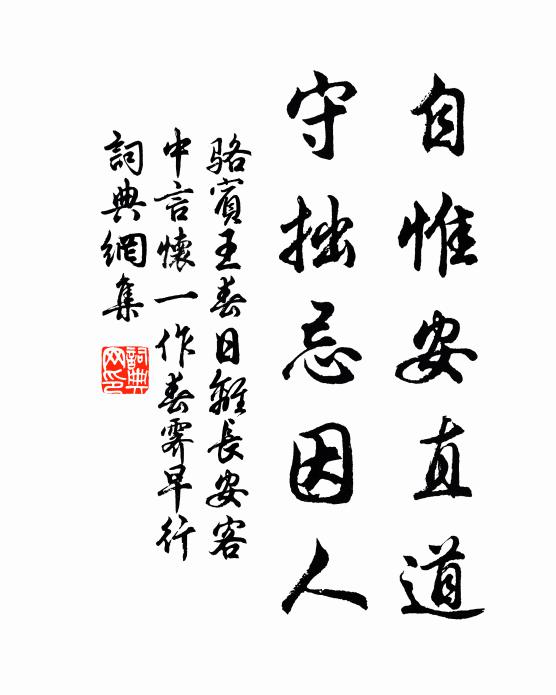 自惟安直道
守拙忌因人
骆賓王春日離長安客
中言懷一作春霽早行
詞典網集
詞典
网印